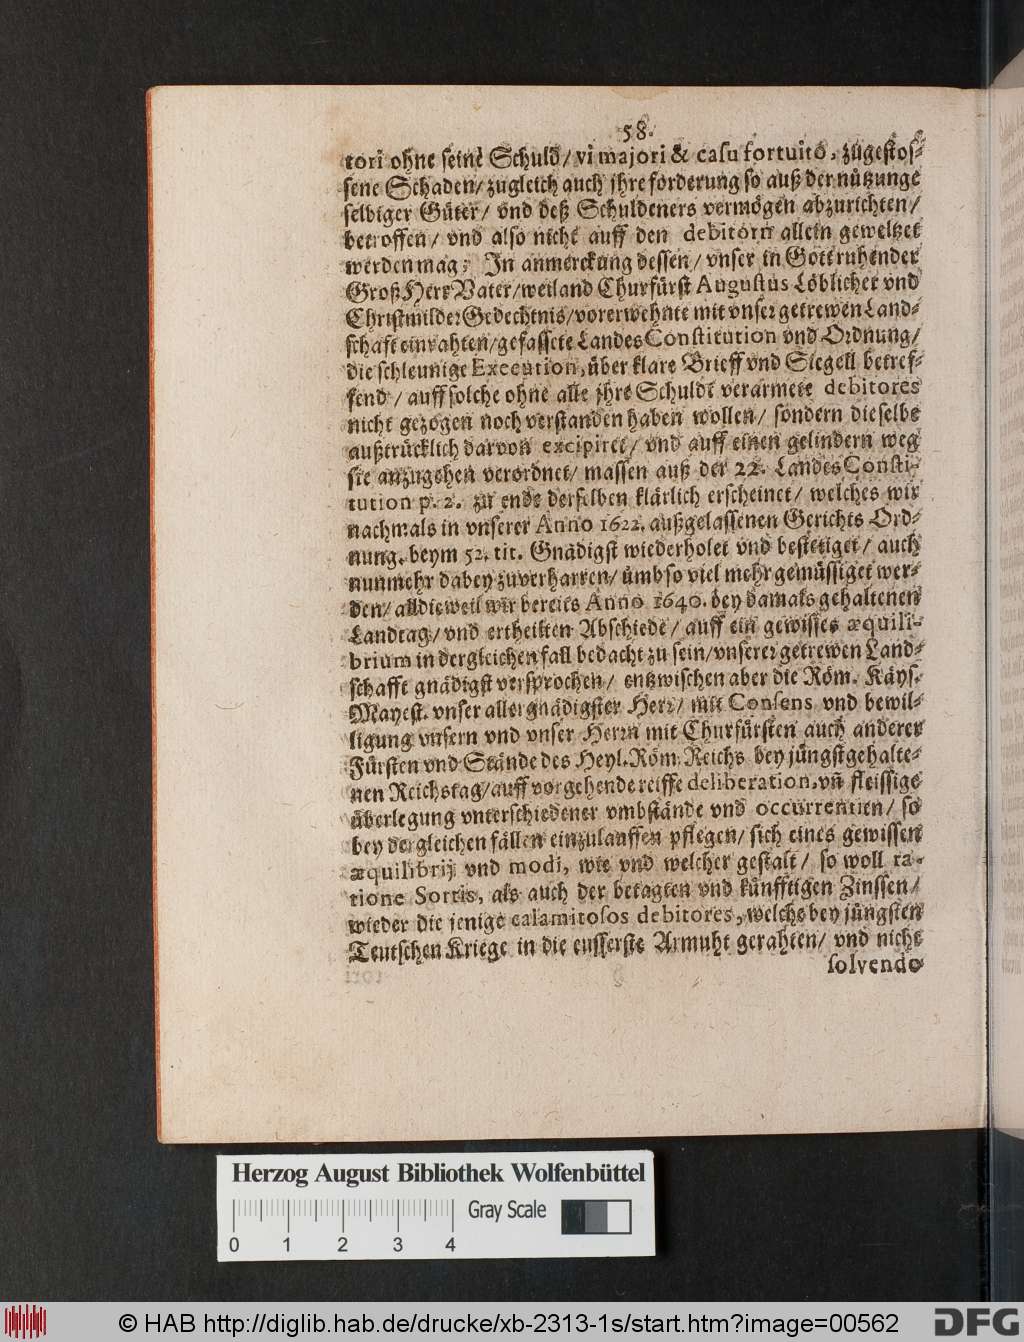 58.
tori ohne seine Schuld / vi majori & casu fortuito, zugestos-
sene Schaden / zugleich auch jhre forderung so auß der nützunge
selbiger Güter / vnd deß Schuldeners vermögen abzurichten /
betroffen / vnd also nicht auff den debitorn allein geweltzet
werden mag; In anmerckung dessen / vnser in Gott ruhender
Groß Herr Vater / weiland Churfürst Augustus Löblicher vnd
Christmilder Gedechtnis / vorerwehnte mit vnser getrewen Land-
schafft einrahten / gefassete Landes Constitution vnd Ordnung /
die schleunige Execution, über klare Brieff vnd Siegell betref-
fend / auff solche ohne alle jhre Schuldt verarmete debitores
nicht gezogen noch verstanden haben wollen / sondern dieselbe
außtrücklich darvon excipiret / vnd auff einen gelindern weg
sie anzugehen verordnet / massen auß der 22. Landes Consti-
tution p. 2. zu ende derselben klärlich erscheinet / welches wir
nachmals in vnserer Anno 1622. außgelassenen Gerichts Ord-
nung. beym 52. tit. Gnädigst wiederholet vnd bestetiget / auch
nunmehr dabey zuverharren / ümb so viel mehr gemüssiget wer-
den / alldieweil wir bereits Anno 1640. bey damals gehaltenen
Landtag / vnd ertheilten Abschiede / auff ein gewisses æquili-
brium in dergleichen fall bedacht zu sein / vnserer getrewen Land-
schafft gnädigst versprochen / entzwischen aber die Röm. Käys.
Mayest. vnser allergnädigster Herr / mit Consens vnd bewil-
ligung vnsern vnd vnser Herrn mit Churfürsten auch anderer
Fürsten vnd Stände des Heyl. Röm. Reichs bey jüngst gehalte-
nen Reichstag / auff vorgehende reiffe deliberation, vñ fleissige
überlegung vnterschiedener vmbstände vnd occurrentien / so
bey dergleichen fällen einzulauffen pflegen / sich eines gewissen
æquilibrij vnd modi, wie vnd welcher gestalt / so woll ra-
tione Sortis, als auch der betagten vnd künfftigen Zinssen /
wieder die jenige calamitosos debitores, welche bey jüngsten
Teutschen Kriege in die eusserste Armuht gerahten / vnd nicht
solvendo
Herzog August Bibliothek Wolfenbüttel
Gray Scale
0 1 2 3 4
© HAB http://diglib.hab.de/drucke/xb-2313-1s/start.htm?image=00562
DFG